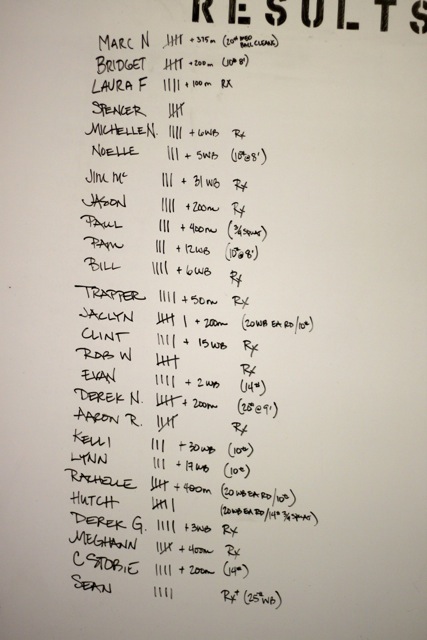 RESULTS
MARC N 𝍸 + 375m (20# MED BALL CLEANS)
BRIDGET 𝍸 + 200m (10# 8')
LAURA F |||| + 100m RX
SPENCER 𝍸
MICHELLE N. |||| + 6WB Rx
NOELLE ||| + 5WB (10# @ 8')
JIM Mc ||| + 31 WB Rx
JASON |||| + 200m Rx
PAUL |||| + 400m (3/4 SQUAT)
PAM ||| + 12WB (10# @ 8')
BILL |||| + 6WB Rx
TRAPPER |||| + 50m Rx
JACLYN 𝍸 | + 200m (20 WB EA RD/10#)
CLINT |||| + 15 WB Rx
ROB W 𝍸 Rx
EVAN |||| + 2WB (14#)
DEREK N. 𝍸 + 200m (20# @ 9')
AARON R. 𝍸 Rx
KELLI ||| + 30WB (10#)
LYNN ||| + 17WB (10#)
RACHELLE 𝍸 + 400m (20 WB EA RD/10#)
HUTCH 𝍸 | (20 WB EA RD/14# 3/4 SQUAT)
DEREK G. |||| + 3WB Rx
MEGHANN 𝍸 + 400m Rx
C STOBIE |||| + 200m (14#)
SEAN |||| Rx+ (25# WB)